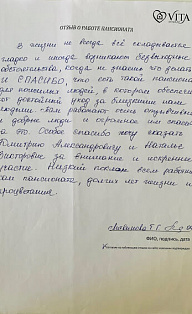 VITA
ОТЗЫВ О РАБОТЕ ПАНСИОНАТА
В жизни не всегда всё складывается
гладко и иногда возникают безвыходные
обстоятельства, когда не знаешь что делать
и СПАСИБО, что есть такой пансионат
для пожилых людей в котором обеспечен
достойный уход за близкими нам
людьми. Там работают очень
и добрые люди и огромное им спасибо
за это. Особое спасибо хочу сказать
Дмитрию Александровичу и Наталье
Викторовне за внимание и искреннее
участие. Низкий поклон всем работникам
пансионата, долгих лет жизни и
процветания.
ФИО, подпись, дата